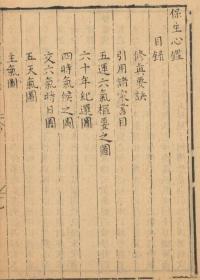 保生心鑑
目錄
修真要訣
引用諸家書目
五運六氣樞要之圖
六十年紀運圖
四時氣候之圖
交六氣時日圖
五天氣圖
主氣圖